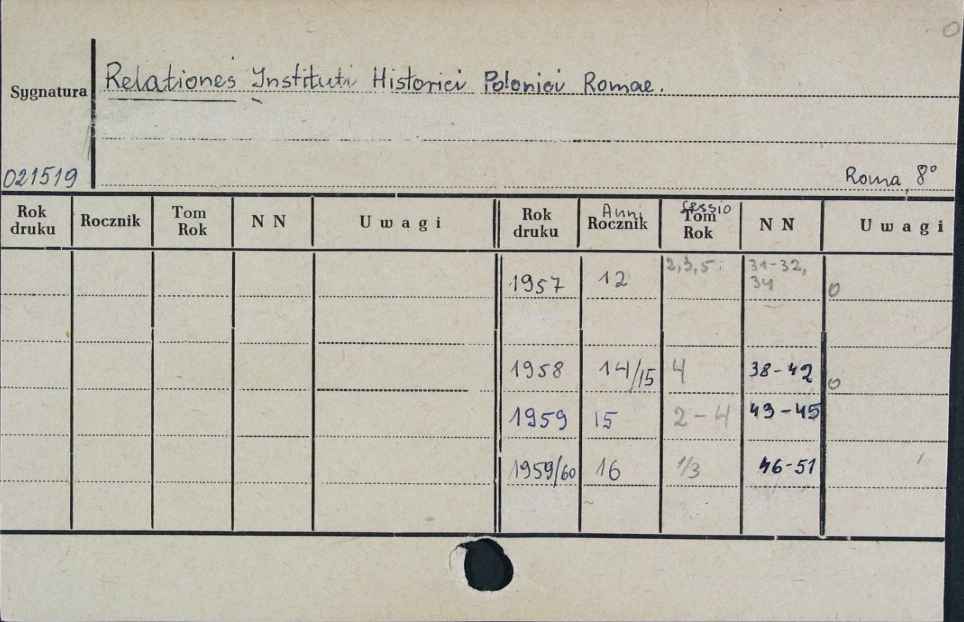 Sygnatura
Relationes Instituti Historici Polonici Romae.
021519
Roma, 8°
Rok druku Rocznik Tom Rok N N Uwagi Rok druku Anni Rocznik Sessio Tom Rok N N Uwagi
1957 12 2,3,5 31-32, 34 0
1958 14/15 4 38-42 0
1959 15 2-4 43-45
1959/60 16 1/3 46-51